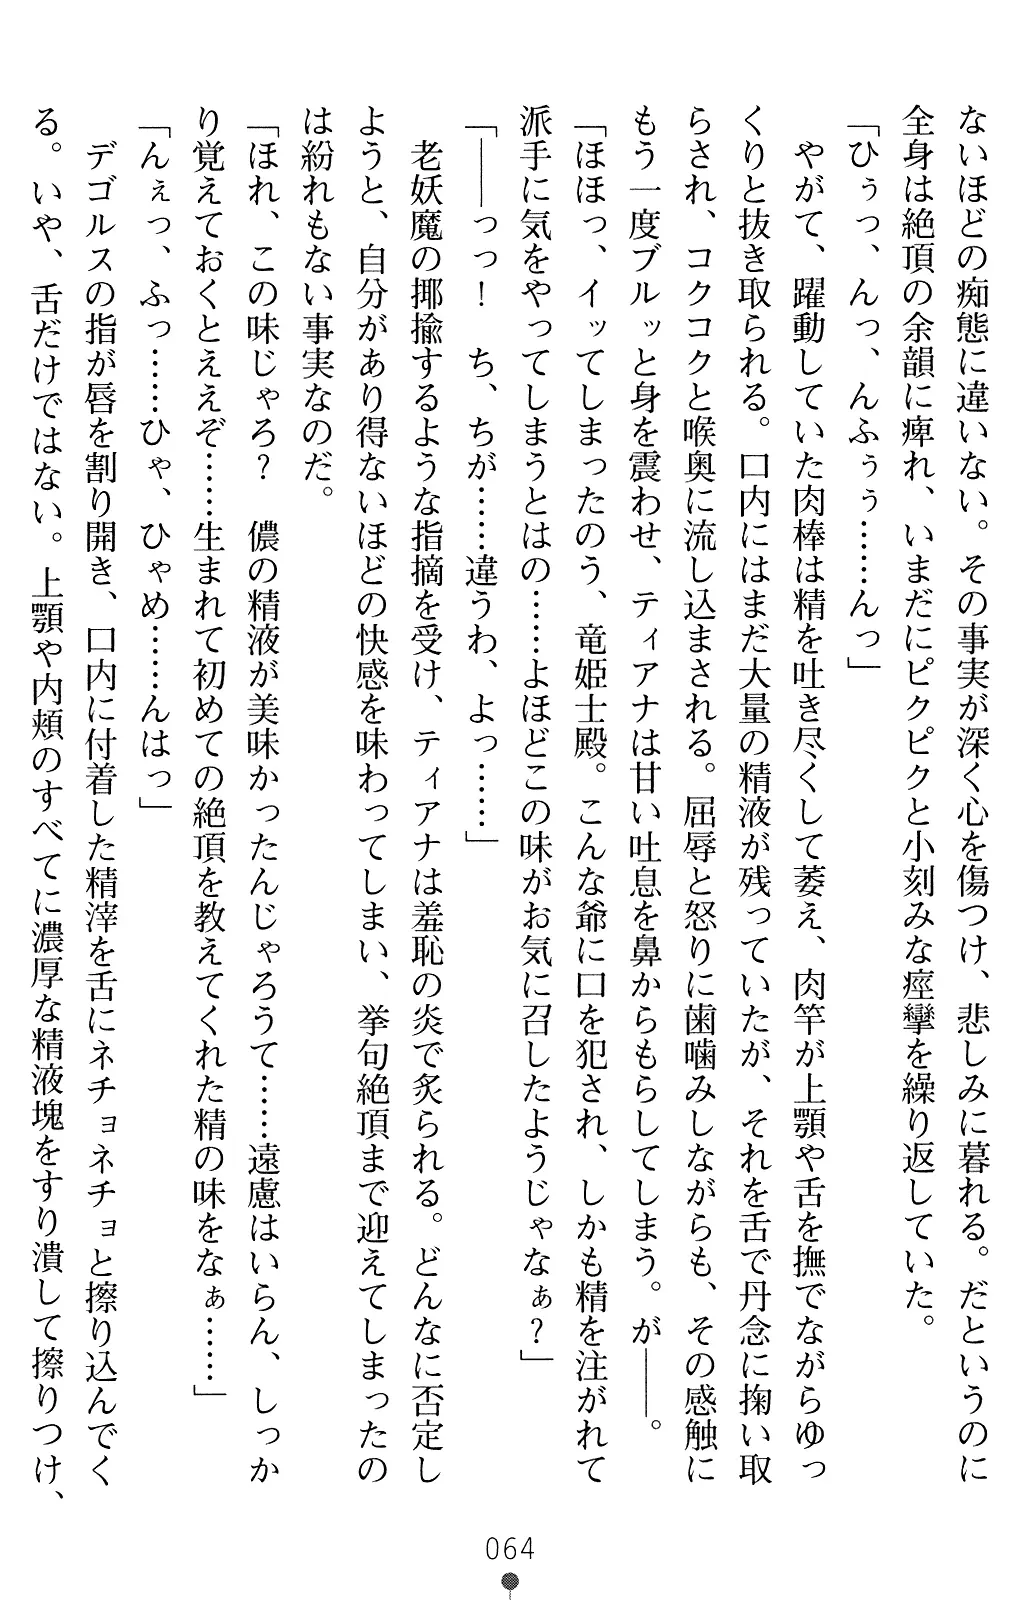 ないほどの痴態に違いない。その事実が深く心を傷つけ、悲しみに暮れる。だというのに
全身は絶頂の余韻に痺れ、いまだにピクピクと小刻みな痙攣を繰り返していた。
「ひぅっ、んっ、んふぅぅ……んっ」
　やがて、躍動していた肉棒は精を吐き尽くして萎え、肉竿が上顎や舌を撫でながらゆっ
くりと抜き取られる。口内にはまだ大量の精液が残っていたが、それを舌で丹念に掬い取
らされ、コクコクと喉奥に流し込まされる。屈辱と怒りに歯噛みしながらも、その感触に
もう一度ブルッと身を震わせ、ティアナは甘い吐息を鼻からもらしてしまう。が――。
「ほほっ、イッてしまったのう、竜姫士殿。こんな爺に口を犯され、しかも精を注がれて
派手に気をやってしまうとはの……よほどこの味がお気に召したようじゃなぁ？」
「――っっ！　ち、ちが……違うわ、よっ……」
　老妖魔の揶揄するような指摘を受け、ティアナは羞恥の炎で炙られる。どんなに否定し
ようと、自分があり得ないほどの快感を味わってしまい、挙句絶頂まで迎えてしまったの
は紛れもない事実なのだ。
「ほれ、この味じゃろ？　儂の精液が美味かったんじゃろうて……遠慮はいらん、しっか
り覚えておくとええぞ……生まれて初めての絶頂を教えてくれた精の味をなぁ……」
「んぇっ、ふっ……ひゃ、ひゃめ……んはっ」
　デゴルスの指が唇を割り開き、口内に付着した精滓を舌にネチョネチョと擦り込んでく
る。いや、舌だけではない。上顎や内頬のすべてに濃厚な精液塊をすり潰して擦りつけ、
064